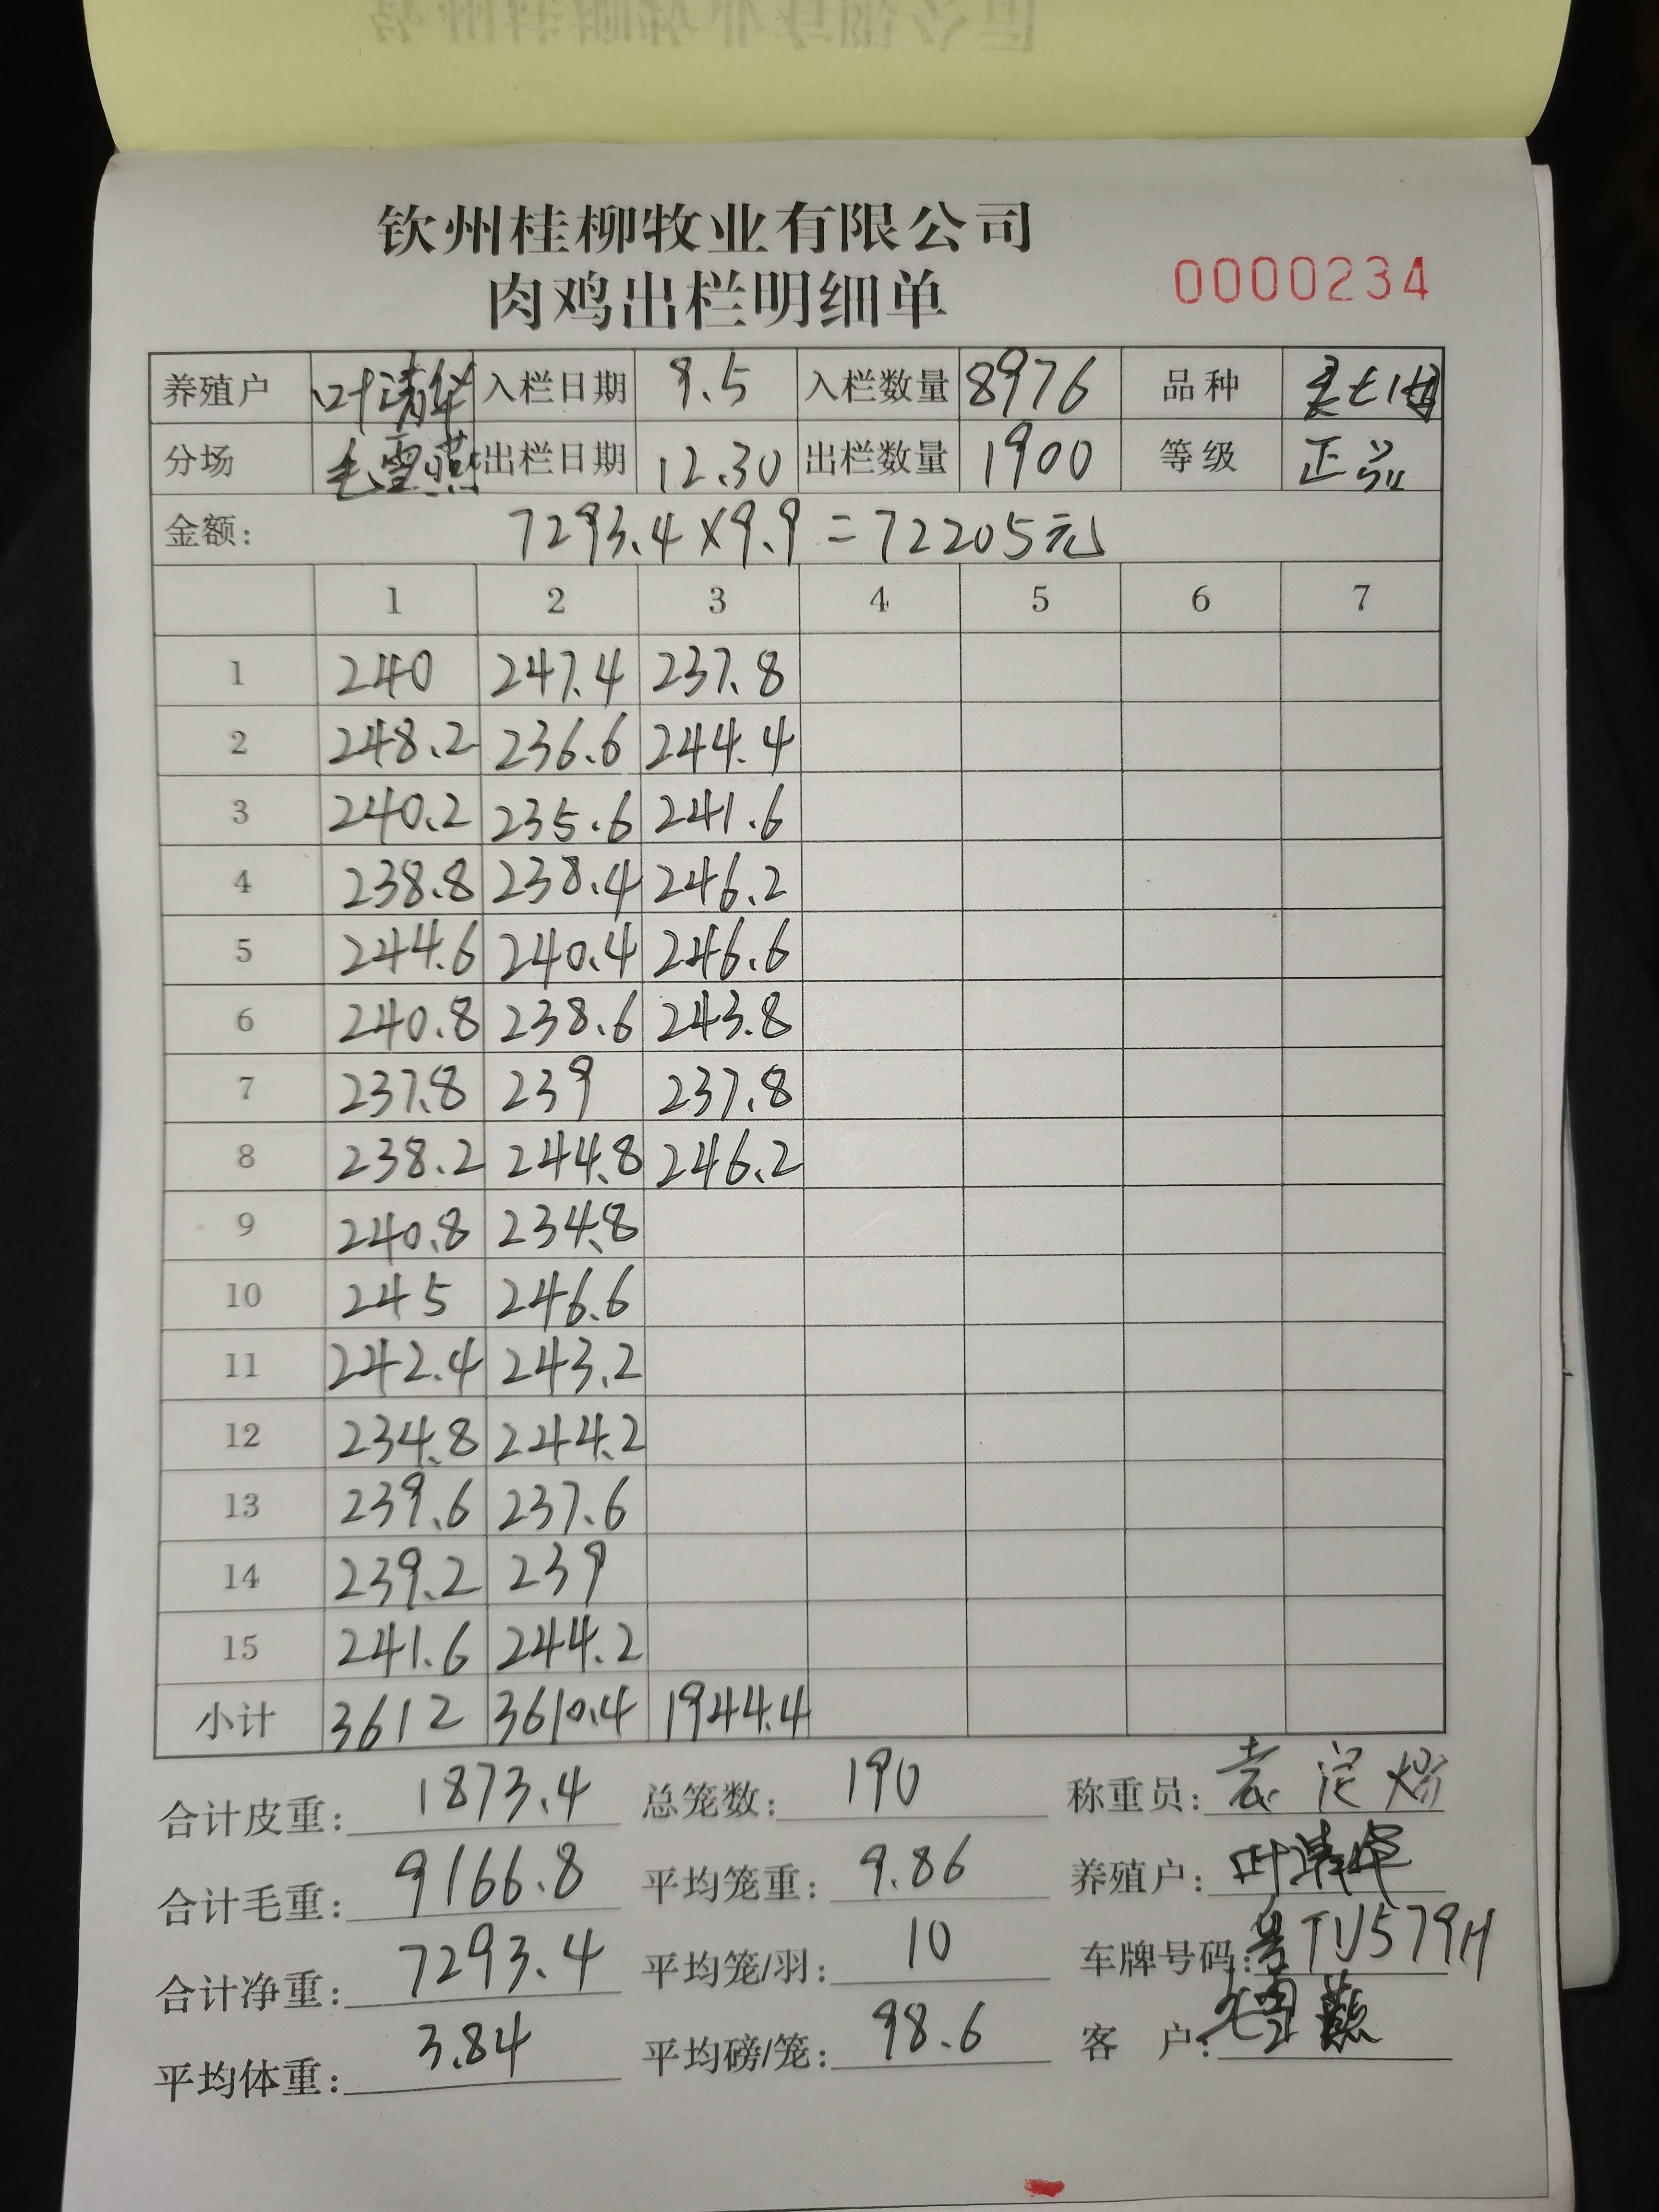 钦州桂柳牧业有限公司
肉鸡出栏明细单
0000234
养殖户 叶清华 入栏日期 9.5 入栏数量 8976 品种
分场 毛雪燕 出栏日期 12.30 出栏数量 1900 等级 正品
金额: 7293.4×9.9=72205元
1 2 3 4 5 6 7
1 240 247.4 237.8
2 248.2 236.6 244.4
3 240.2 235.6 241.6
4 238.8 238.4 246.2
5 244.6 240.4 246.6
6 240.8 238.6 243.8
7 237.8 239 237.8
8 238.2 244.8 246.2
9 240.8 234.8
10 245 246.6
11 242.4 243.2
12 234.8 244.2
13 239.6 237.6
14 239.2 239
15 241.6 244.2
小计 3612 3610.4 1944.4
合计皮重: 1873.4 总笼数: 190 称重员: 袁
合计毛重: 9166.8 平均笼重: 9.86 养殖户: 叶清华
合计净重: 7293.4 平均笼/羽: 10 车牌号码: 粤TU579H
平均体重: 3.84 平均磅/笼: 98.6 客 户: 毛雪燕